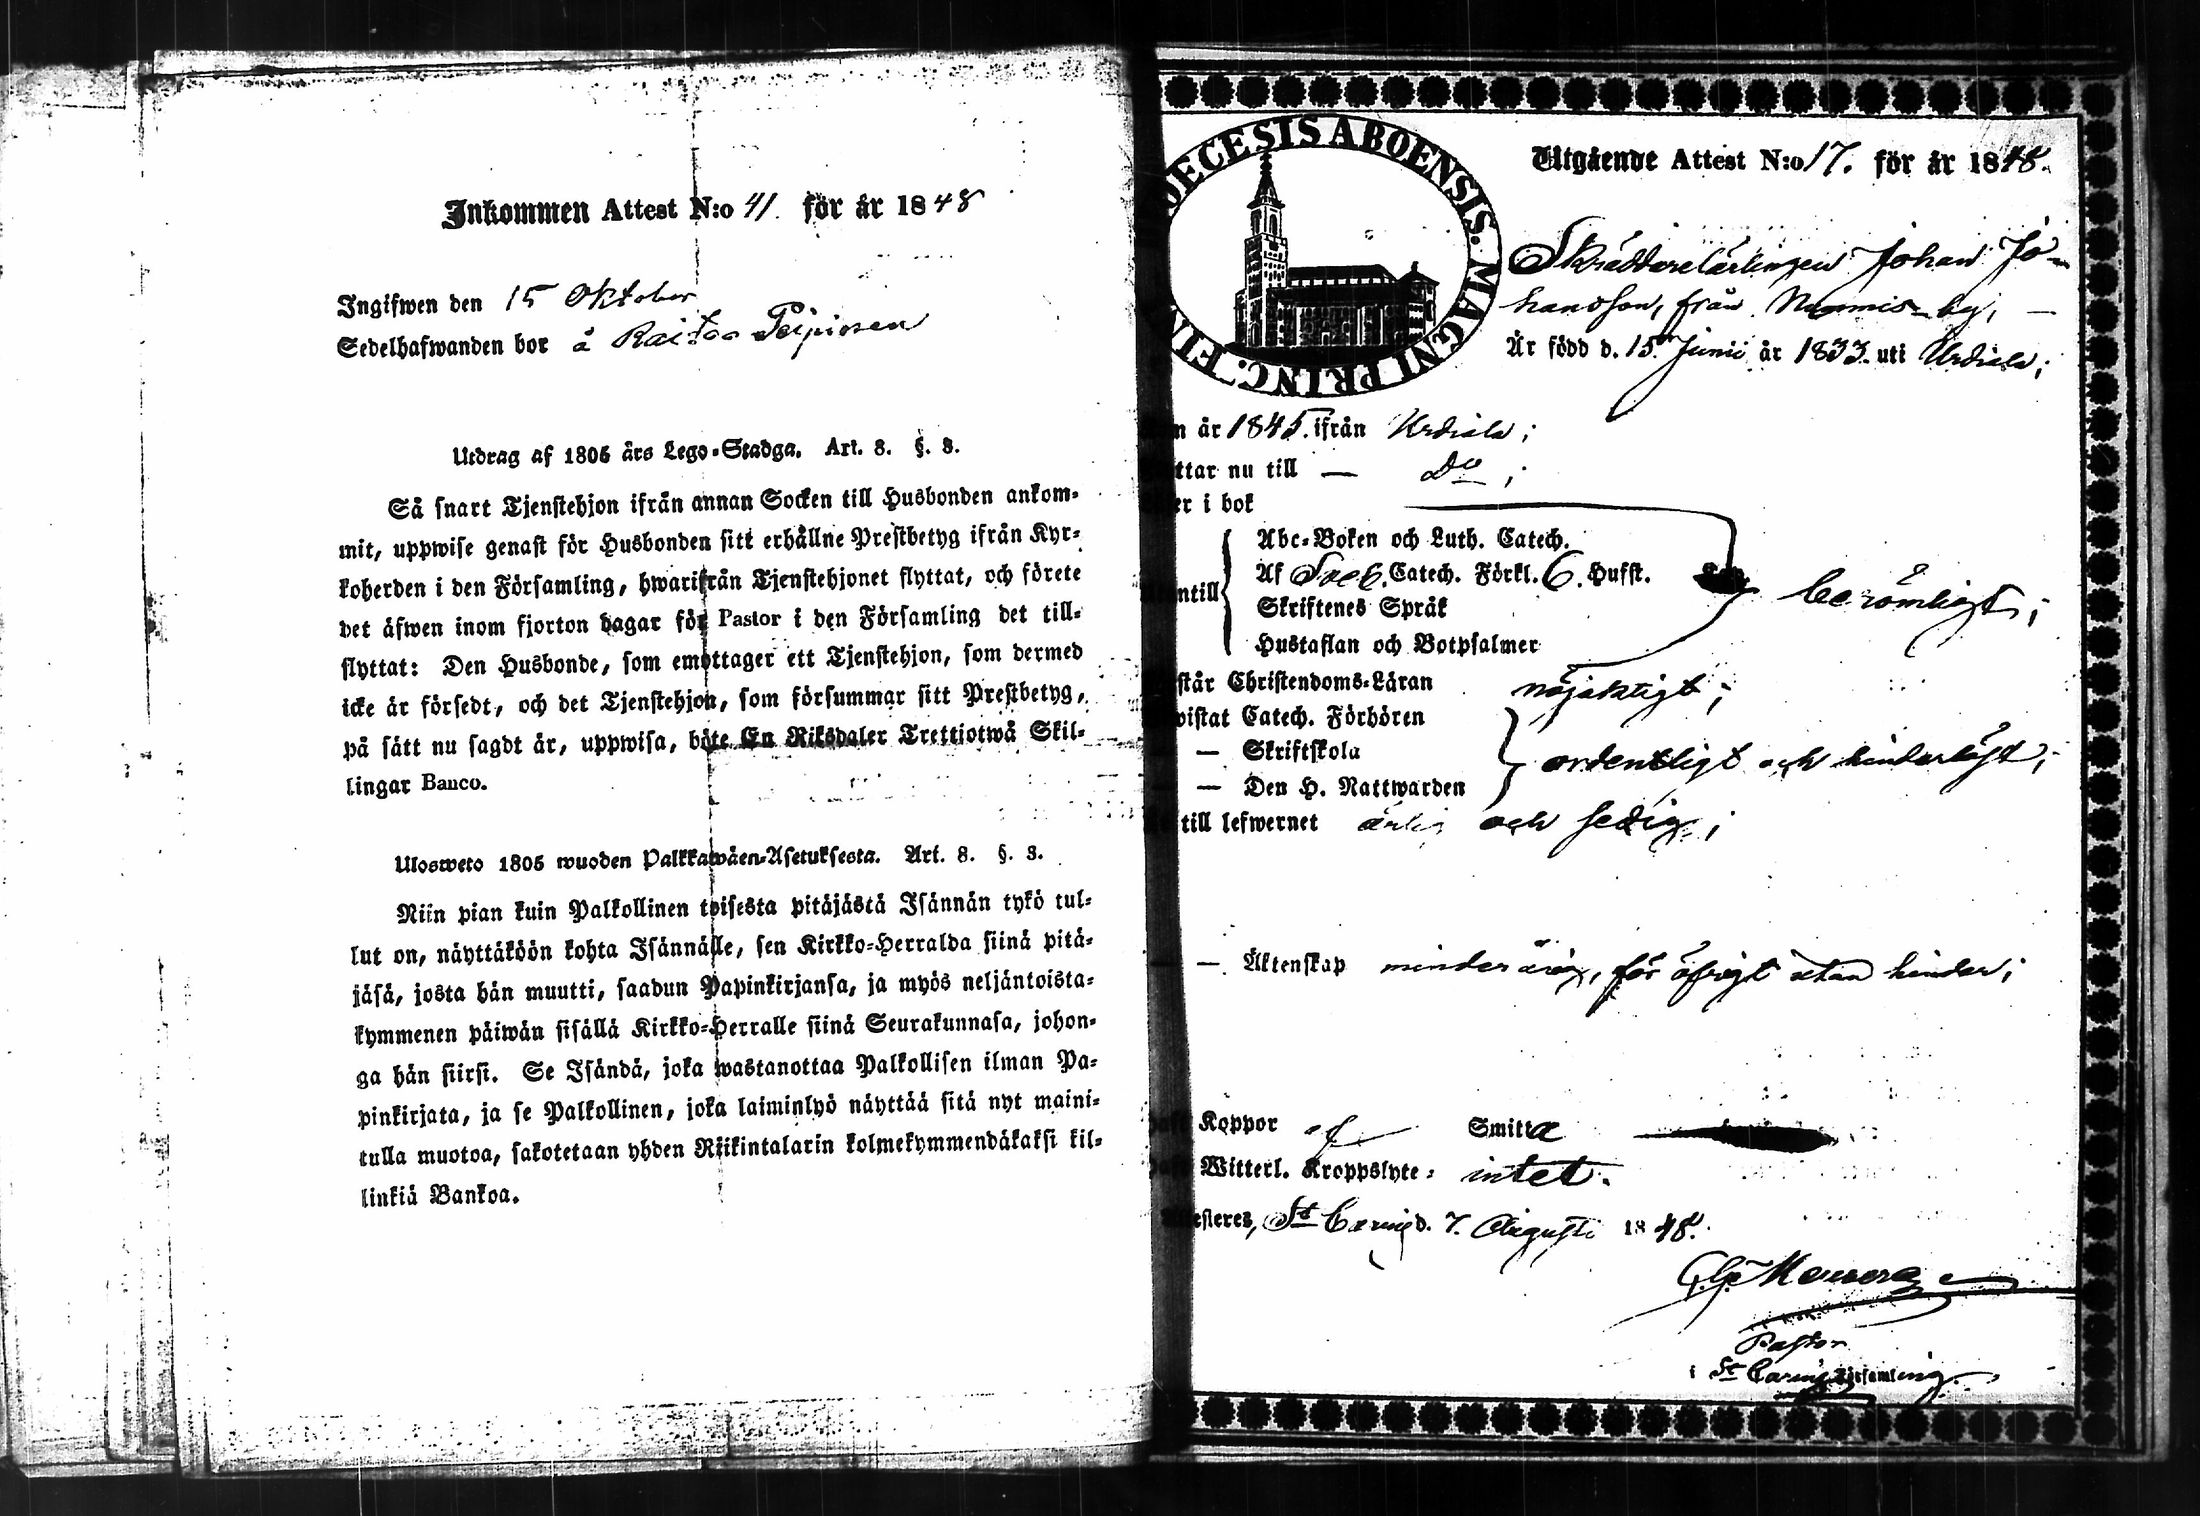 Inkommen Attest N:o 41. för år 1848
Ingifwen den 15 Oktober
Sedelhafwanden bor å Raitoo
Utdrag af 1805 års Lego-Stadga. Art. 8. §. 3.
Så snart Tjenstehjon ifrån annan Socken till Husbonden ankom-
mit, uppwise genast för Husbonden sitt erhållne Prestbetyg ifrån Kyr-
koherden i den Församling, hwarifrån Tjenstehjonet flyttat, och förete
det äfwen inom fjorton dagar för Pastor i den Församling det till-
flyttat: Den Husbonde, som emottager ett Tjenstehjon, som dermed
icke är försedt, och det Tjenstehjon, som försummar sitt Prestbetyg,
på sätt nu sagdt är, uppwisa, böte En Riksdaler Trettiotwå Skil-
lingar Banco.
Ulosweto 1805 wuoden Palkkawäen-Asetuksesta. Art. 8. §. 3.
Niin pian kuin Palkollinen toisesta pitäjästä Isännän tykö tul-
lut on, näyttäköön kohta Isännälle, sen Kirkko-Herralda siinä pitä-
jäsä, josta hän muutti, saadun Papinkirjansa, ja myös neljäntoista-
kymmenen päiwän sisällä Kirkko-Herralle siinä Seurakunnasa, johon-
ga hän siirsi. Se Isändä, joka wastanottaa Palkollisen ilman Pa-
pinkirjata, ja se Palkollinen, joka laiminlyö näyttää sitä nyt maini-
tulla muotoa, sakotetaan yhden Riikintalarin kolmekymmendäkaksi kil-
linkiä Bankoa.
DECESIS ABOENSIS. MAGNI PRINC. FIN
Utgående Attest N:o 17. för år 1848.
Skräddarelärlingen Johan Jo-
hansson, från Nummis by;
Är född d. 15 Junii år 1833. uti Urdiala;
år 1845. ifrån Urdiala;
ttar nu till — Do;
er i bok
Abc-Boken och Luth. Catech.
Af Sveb. Catech. Förkl. 6. Hufst.
berömligt;
ntill
Skriftenes Språk
Hustaflan och Botpsalmer
står Christendoms-Läran nöjaktigt;
wistat Catech. Förhören
— Skriftskola
ordentligt och hinderlöst;
— Den H. Nattwarden
till lefwernet ärlig och sedig;
— Äktenskap minderårig, för öfrigt utan hinder;
Koppor Smitta
Witterl. Kroppslyte: intet.
Attesteres, St Carins d. 7. Augusti 1848.
Pastor
i St Carins Församling.